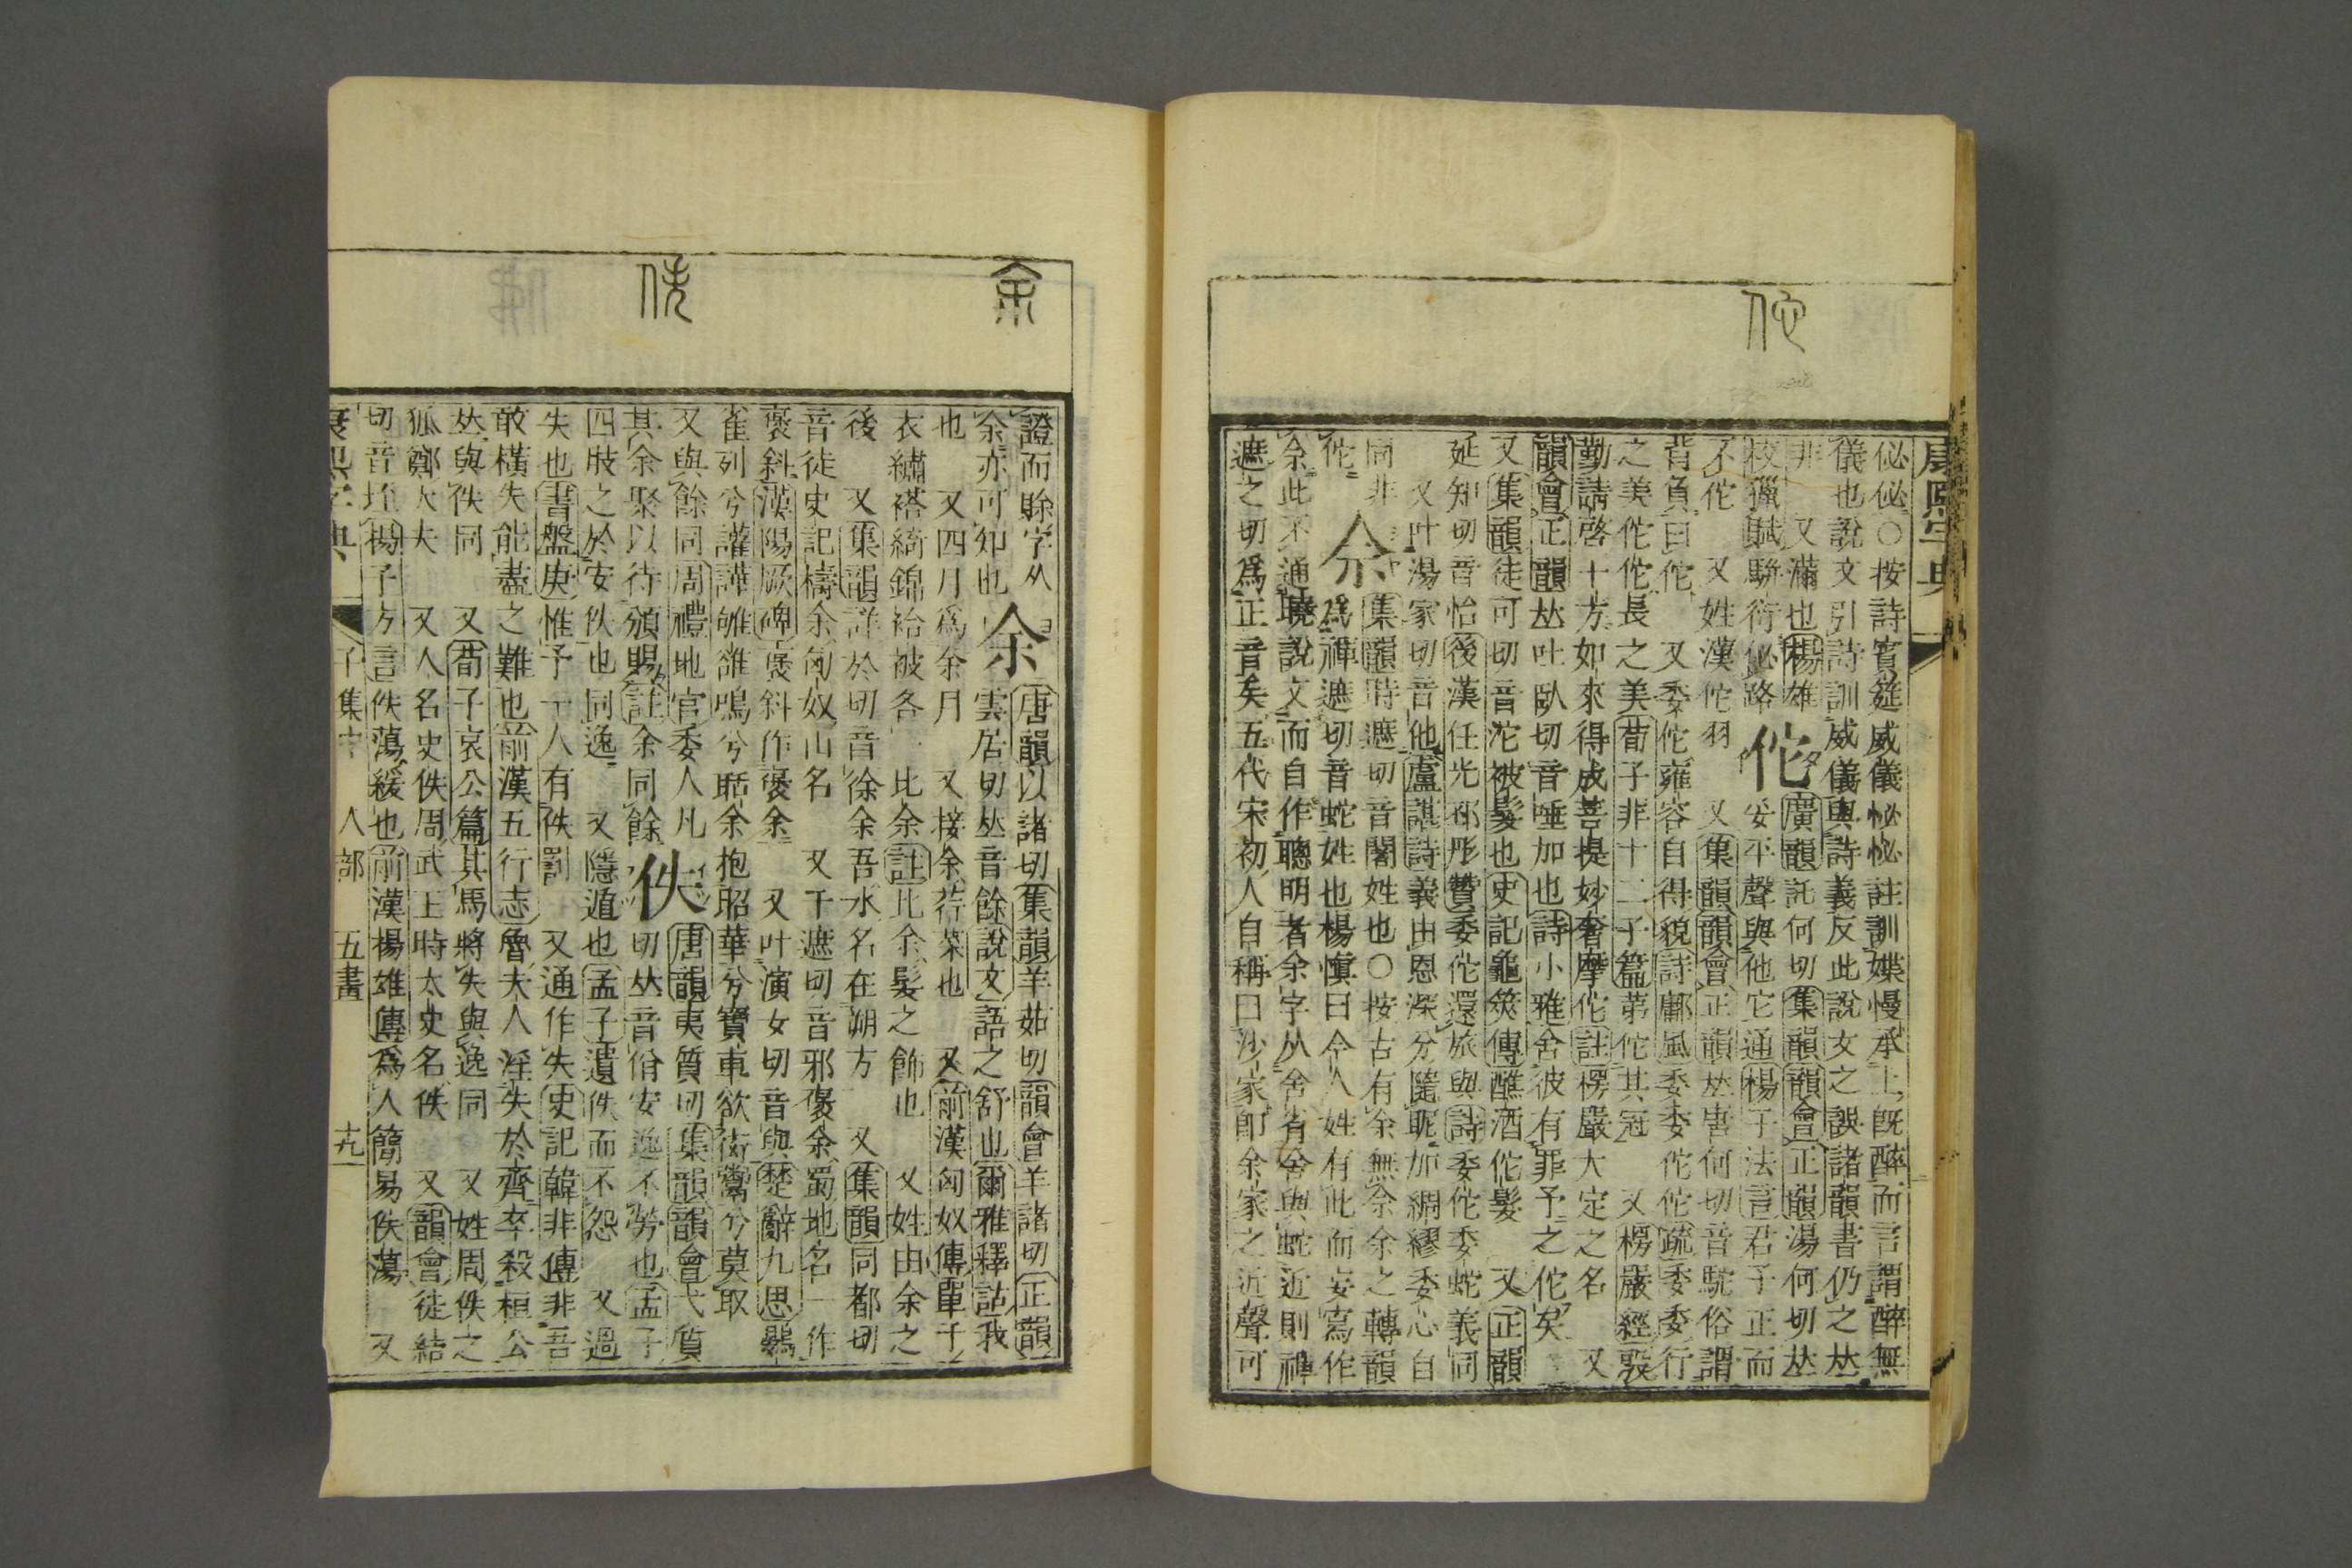 康熙字典
佖佖○按詩賓筵威儀怭怭註訓媟慢承上旣醉而言謂醉無
儀也說文引詩訓威儀與詩義反此說文之誤諸韻書仍之𠀤
非 又滿也楊雄 廣韻託何切集韻韻會正韻湯何切𠀤
校獵賦駢衍佖路 佗 妥平聲與他它通楊子法言君子正而
不佗 又姓漢佗羽 又集韻韻會正韻𠀤唐何切音駝俗謂
背負曰佗 又委佗雍容自得貌詩鄘風委委佗佗疏委委行
之美佗佗長之美荀子非十二子篇第佗其冠 又楞嚴經嚴
勤請啓十方如來得成菩提妙奢摩佗註楞嚴大定之名 又
韻會正韻𠀤吐臥切音唾加也詩小雅舍彼有罪予之佗矣
又集韻徒可切音沱被髮也史記龜筴傳醮酒佗髮 又正韻
延知切音怡後漢任光邳彤贊委佗還旅與詩委佗委蛇義同
又叶湯家切音他盧諶詩義由恩深分隨昵加綢繆委心自
同非 集韻時遮切音闍姓也○按古有余無佘余之轉韻
佗 佘 爲禪遮切音蛇姓也楊愼曰今人姓有此而妄寫作
佘此不通曉說文而自作聰明者余字从舍省舍與蛇近則禪
遮之切爲正音矣五代宋初人自稱曰沙家卽余家之近聲可
證而賖字从 唐韻以諸切集韻羊茹切韻會羊諸切正韻
余亦可知也 余 雲居切𠀤音餘說文語之舒也爾雅釋詁我
也 又四月爲余月 又接余荇菜也 又前漢匈奴傳單于
衣繡袷綺錦袷被各一比余註比余髮之飾也 又姓由余之
後 又集韻詳於切音徐余吾水名在朔方 又集韻同都切
音徒史記檮余匈奴山名 又于遮切音邪褒余蜀地名一作
褒斜漢陽厥碑褒斜作褒余 又叶演女切音與楚辭九思鵾
雀列兮讙譁雊雒鳴兮聒余抱昭華兮寶車欲衒鬻兮莫取
又與餘同周禮地官委人凡 唐韻夷質切集韻韻會弋質
其余聚以待頒賜註余同餘 佚 切𠀤音佾安逸不勞也孟子
四肢之於安佚也同逸 又隱遁也孟子遺佚而不怨 又過
失也書盤庚惟予一人有佚罰 又通作失史記韓非傳非吾
敢橫失能盡之難也前漢五行志魯夫人淫失於齊卒殺桓公
𠀤與佚同 又荀子哀公篇其馬將失與逸同 又姓周佚之
狐鄭大夫 又人名史佚周武王時太史名佚 又韻會徒結
切音垤楊子方言佚蕩緩也前漢楊雄傳爲人簡易佚蕩 又
康熙字典 子集中 人部 五畫 十九